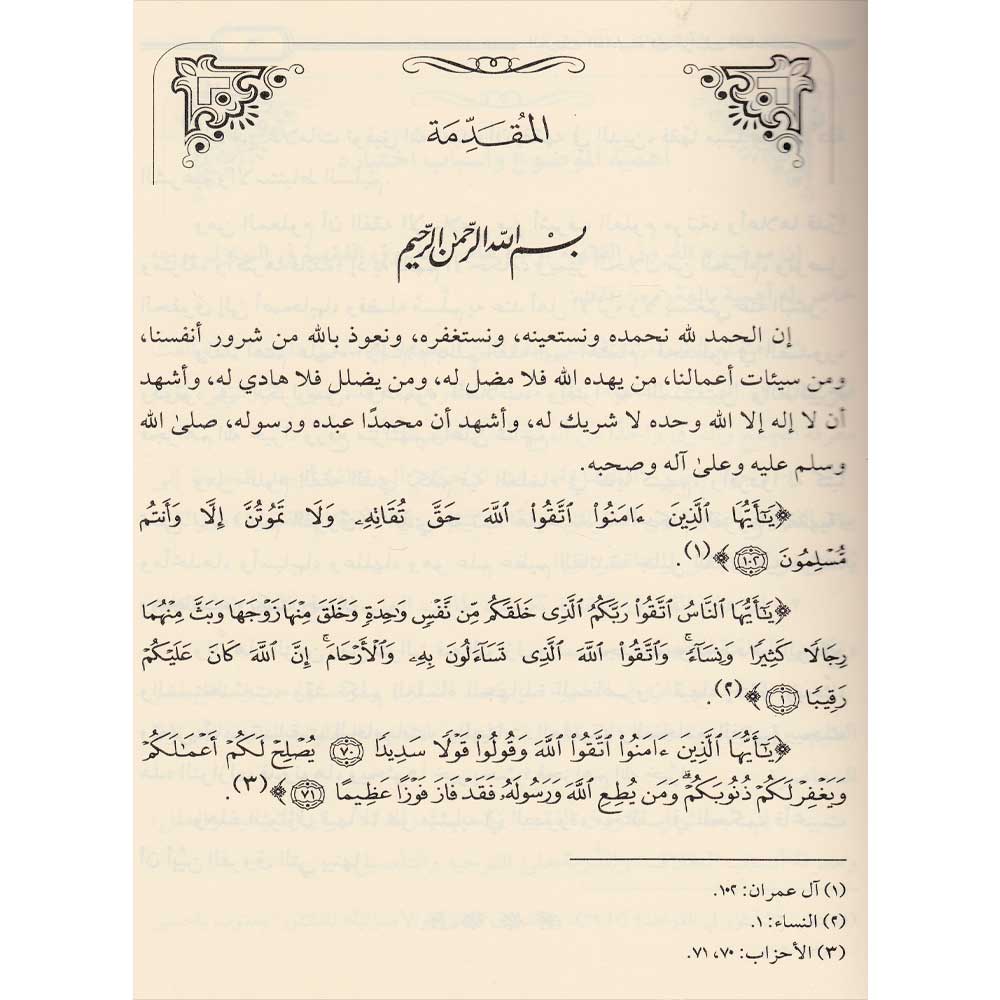 المُقَدِّمَة
بسم الله الرحمن الرحيم
إن الحمد لله نحمده ونستعينه، ونستغفره، ونعوذ بالله من شرور أنفسنا،
ومن سيئات أعمالنا، من يهده الله فلا مضل له، ومن يضلل فلا هادي له، وأشهد
أن لا إله إلا الله وحده لا شريك له، وأشهد أن محمدًا عبده ورسوله، صلىٰ الله
وسلم عليه وعلىٰ آله وصحبه.
﴿يَٰٓأَيُّهَا ٱلَّذِينَ ءَامَنُوا۟ ٱتَّقُوا۟ ٱللَّهَ حَقَّ تُقَاتِهِۦ وَلَا تَمُوتُنَّ إِلَّا وَأَنتُم
مُّسْلِمُونَ ١٠٢﴾(١).
﴿يَٰٓأَيُّهَا ٱلنَّاسُ ٱتَّقُوا۟ رَبَّكُمُ ٱلَّذِى خَلَقَكُم مِّن نَّفْسٍ وَٰحِدَةٍ وَخَلَقَ مِنْهَا زَوْجَهَا وَبَثَّ مِنْهُمَا
رِجَالًا كَثِيرًا وَنِسَآءً ۚ وَٱتَّقُوا۟ ٱللَّهَ ٱلَّذِى تَسَآءَلُونَ بِهِۦ وَٱلْأَرْحَامَ ۚ إِنَّ ٱللَّهَ كَانَ عَلَيْكُمْ
رَقِيبًا ١﴾(٢).
﴿يَٰٓأَيُّهَا ٱلَّذِينَ ءَامَنُوا۟ ٱتَّقُوا۟ ٱللَّهَ وَقُولُوا۟ قَوْلًا سَدِيدًا ٧٠ يُصْلِحْ لَكُمْ أَعْمَٰلَكُمْ
وَيَغْفِرْ لَكُمْ ذُنُوبَكُمْ ۗ وَمَن يُطِعِ ٱللَّهَ وَرَسُولَهُۥ فَقَدْ فَازَ فَوْزًا عَظِيمًا ٧١﴾(٣).
(١) آل عمران: ١٠٢.
(٢) النساء: ١.
(٣) الأحزاب: ٧٠، ٧١.